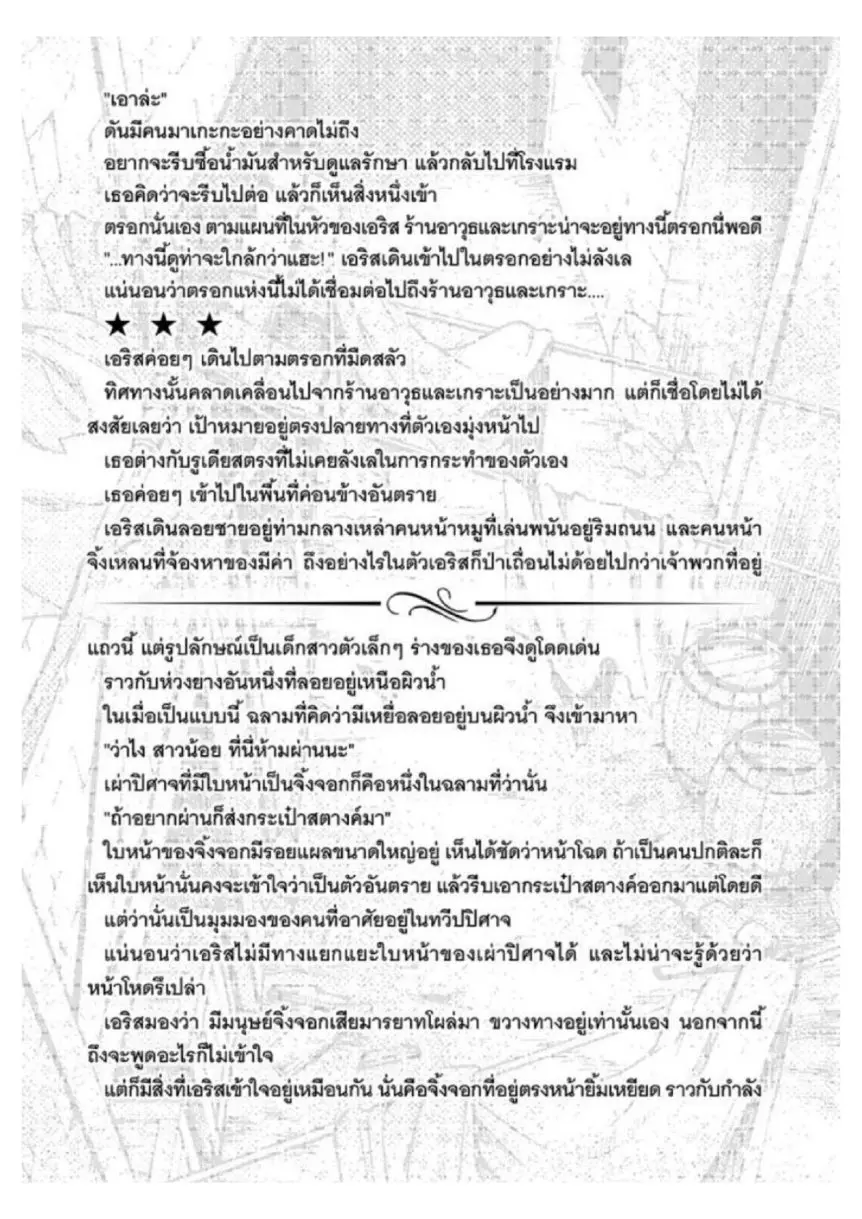 "เอาล่ะ"
ดันมีคนมาเกะกะอย่างคาดไม่ถึง
อยากจะรีบซื้อน้ำมันสำหรับดูแลรักษา แล้วกลับไปที่โรงแรม
เธอคิดว่าจะรีบไปต่อ แล้วก็เห็นสิ่งหนึ่งเข้า
ตรอกนั่นเอง ตามแผนที่ในหัวของเอริส ร้านอาวุธและเกราะน่าจะอยู่ทางนี้ตรอกนี้พอดี
"...ทางนี้ดูท่าจะใกล้กว่าแฮะ!" เอริสเดินเข้าไปในตรอกอย่างไม่ลังเล
แน่นอนว่าตรอกแห่งนี้ไม่ได้เชื่อมต่อไปถึงร้านอาวุธและเกราะ....
★ ★ ★
เอริสค่อยๆ เดินไปตามตรอกที่มืดสลัว
ทิศทางนั้นคลาดเคลื่อนไปจากร้านอาวุธและเกราะเป็นอย่างมาก แต่ก็เชื่อโดยไม่ได้
สงสัยเลยว่า เป้าหมายอยู่ตรงปลายทางที่ตัวเองมุ่งหน้าไป
เธอต่างกับรูเดียสตรงที่ไม่เคยลังเลในการกระทำของตัวเอง
เธอค่อยๆ เข้าไปในพื้นที่ค่อนข้างอันตราย
เอริสเดินลอยชายอยู่ท่ามกลางเหล่าคนหน้าหมูที่เล่นพนันอยู่ริมถนน และคนหน้า
จิ้งเหลนที่จ้องหาของมีค่า ถึงอย่างไรในตัวเอริสก็ป่าเถื่อนไม่ด้อยไปกว่าเจ้าพวกที่อยู่
แถวนี้ แต่รูปลักษณ์เป็นเด็กสาวตัวเล็กๆ ร่างของเธอจึงดูโดดเด่น
ราวกับห่วงยางอันหนึ่งที่ลอยอยู่เหนือผิวน้ำ
ในเมื่อเป็นแบบนี้ ฉลามที่คิดว่ามีเหยื่อลอยอยู่บนผิวน้ำ จึงเข้ามาหา
"ว่าไง สาวน้อย ที่นี่ห้ามผ่านนะ"
เผ่าปิศาจที่มีใบหน้าเป็นจิ้งจอกก็คือหนึ่งในฉลามที่ว่านั่น
"ถ้าอยากผ่านก็ส่งกระเป๋าสตางค์มา"
ใบหน้าของจิ้งจอกมีรอยแผลขนาดใหญ่อยู่ เห็นได้ชัดว่าหน้าโฉด ถ้าเป็นคนปกติละก็
เห็นใบหน้านั่นคงจะเข้าใจว่าเป็นตัวอันตราย แล้วรีบเอากระเป๋าสตางค์ออกมาแต่โดยดี
แต่ว่านั่นเป็นมุมมองของคนที่อาศัยอยู่ในทวีปปิศาจ
แน่นอนว่าเอริสไม่มีทางแยกแยะใบหน้าของเผ่าปิศาจได้ และไม่น่าจะรู้ด้วยว่า
หน้าโหดรึเปล่า
เอริสมองว่า มีมนุษย์จิ้งจอกเสียมารยาทโผล่มา ขวางทางอยู่เท่านั้นเอง นอกจากนี้
ถึงจะพูดอะไรก็ไม่เข้าใจ
แต่ก็มีสิ่งที่เอริสเข้าใจอยู่เหมือนกัน นั่นคือจิ้งจอกที่อยู่ตรงหน้ายิ้มเหยียด ราวกับกำลัง